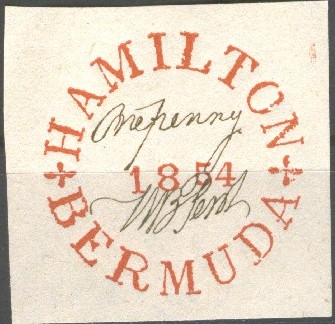 HAMILTON
One penny
1854
W B Perot
BERMUDA